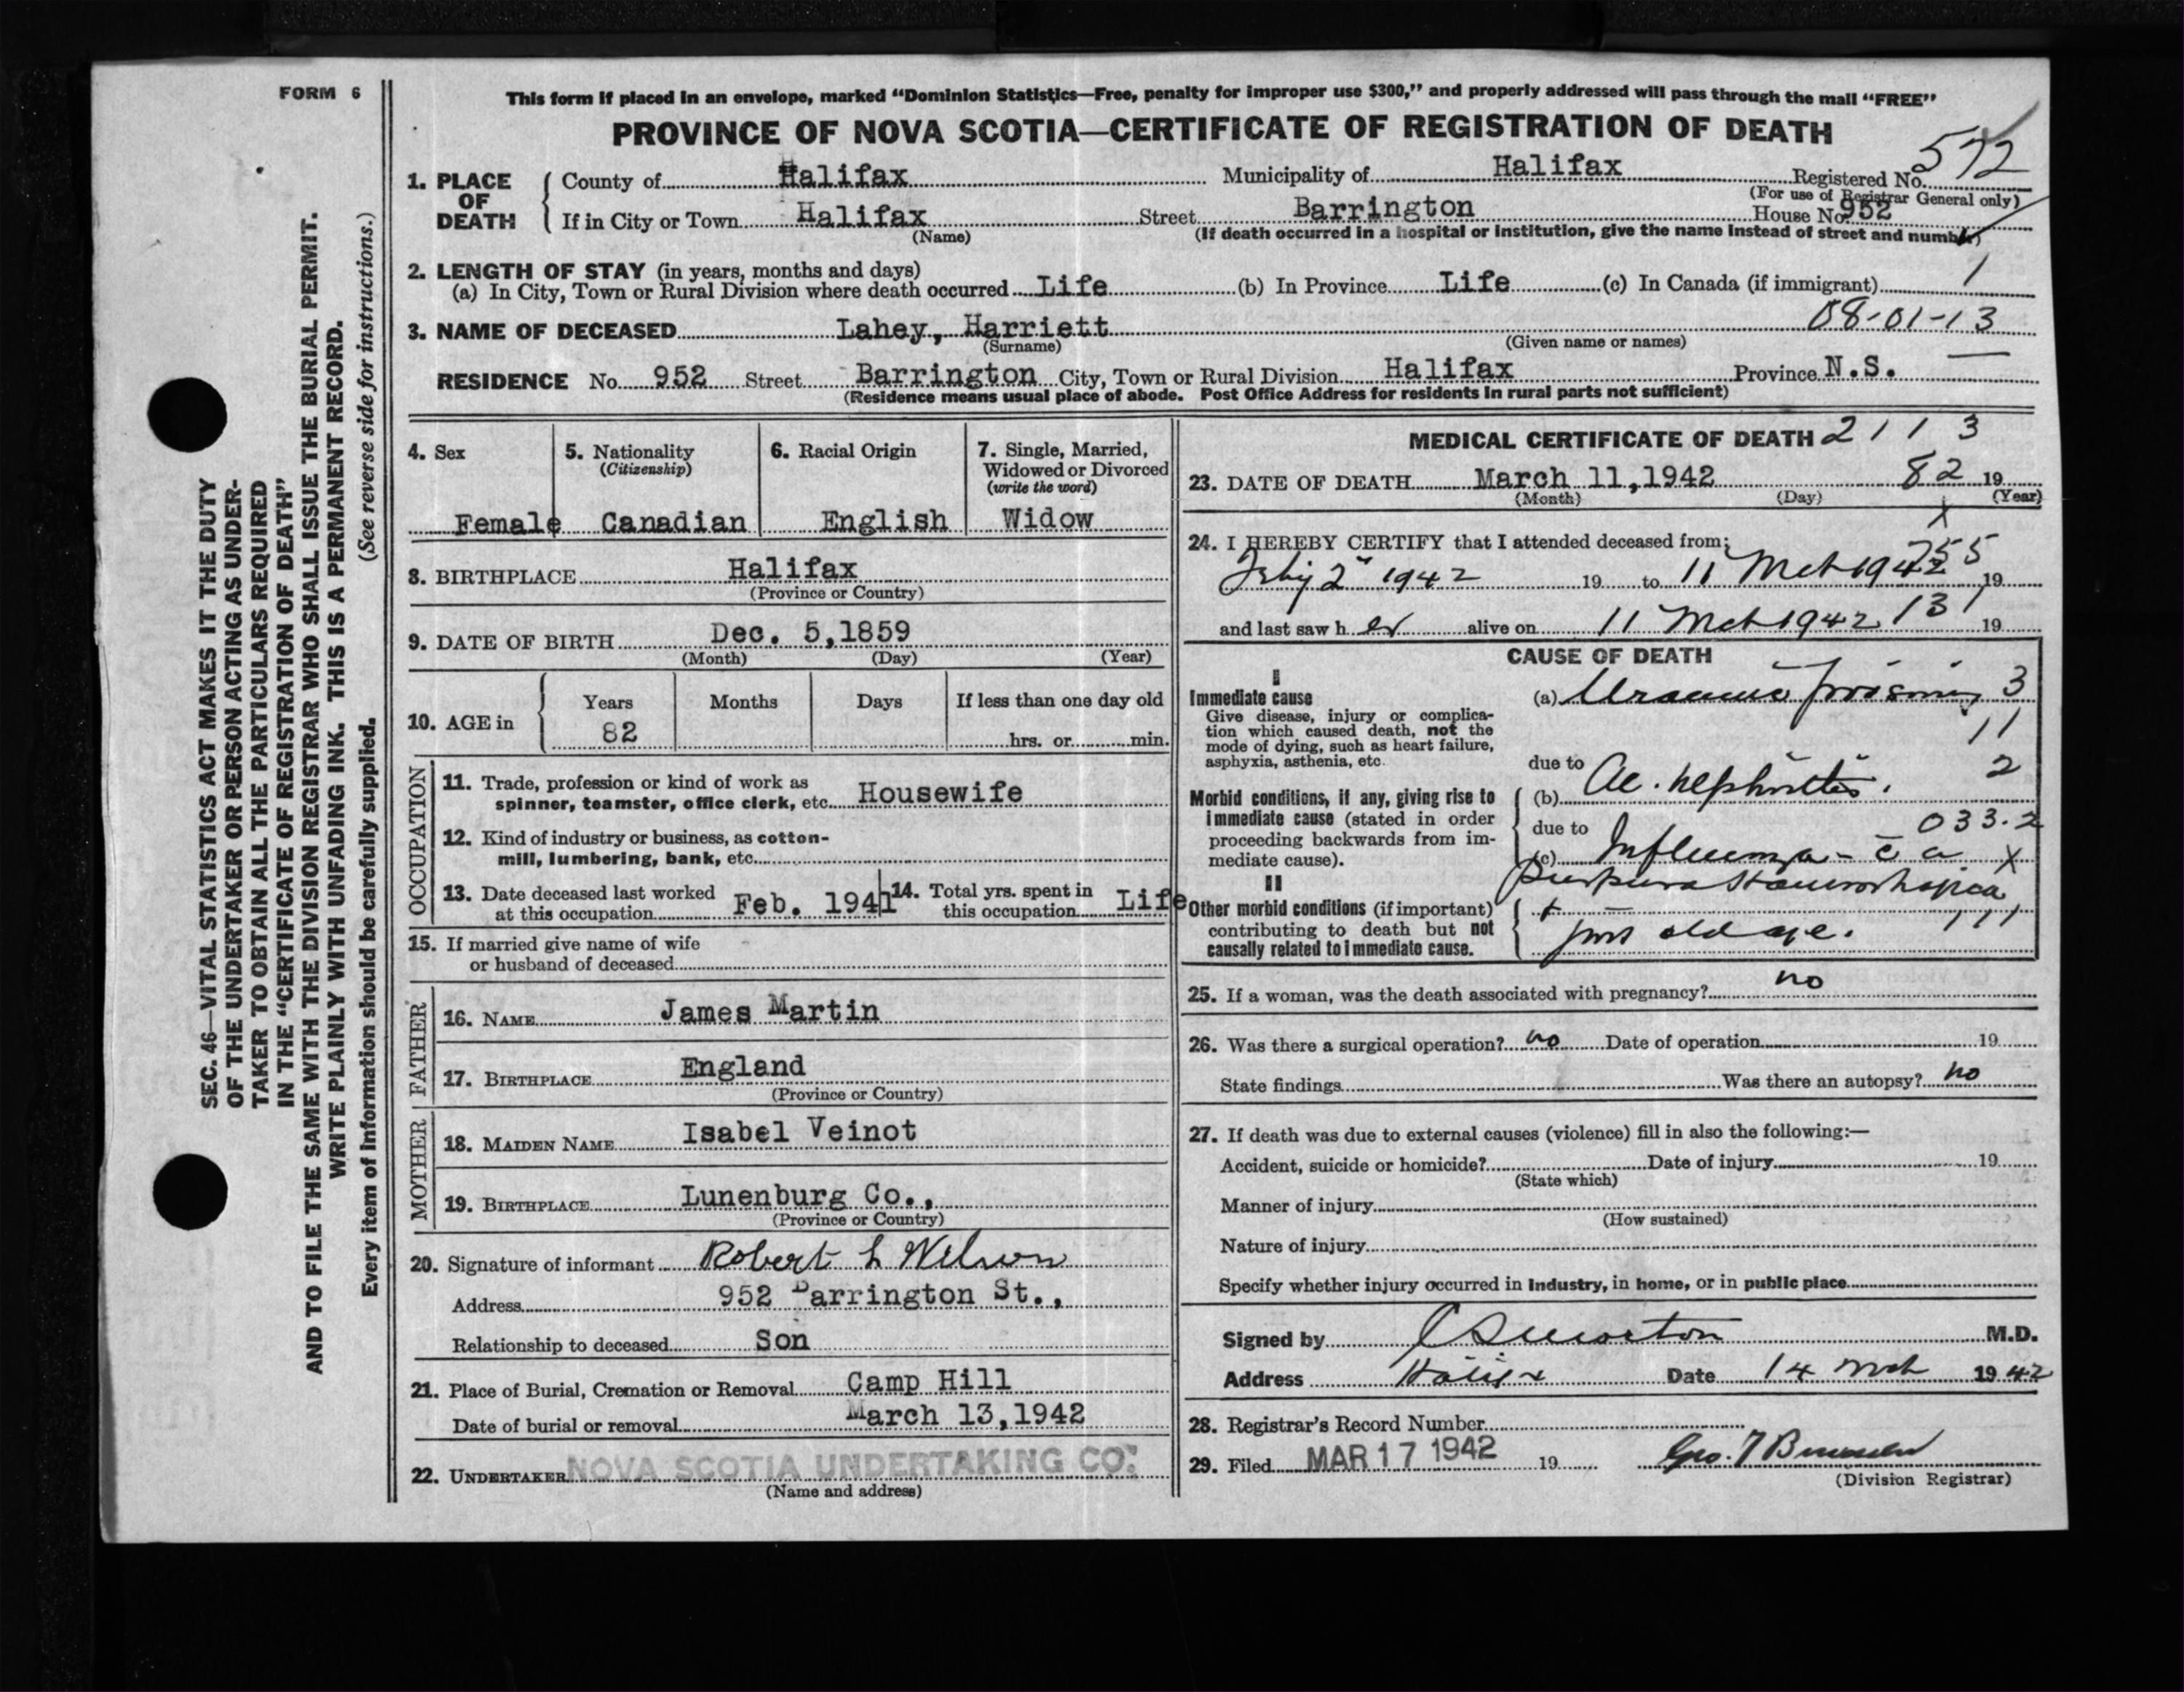 FORM 6
This form if placed in an envelope, marked “Dominion Statistics—Free, penalty for improper use $300,” and properly addressed will pass through the mail “FREE”
PROVINCE OF NOVA SCOTIA—CERTIFICATE OF REGISTRATION OF DEATH
572
1. PLACE OF DEATH
County of Halifax Municipality of Halifax Registered No.
(For use of Registrar General only)
If in City or Town Halifax Street Barrington House No. 952
(Name) (If death occurred in a hospital or institution, give the name instead of street and number)
2. LENGTH OF STAY (in years, months and days)
(a) In City, Town or Rural Division where death occurred Life (b) In Province Life (c) In Canada (if immigrant) 1
08-01-13
3. NAME OF DECEASED Lahey, Harriett
(Surname) (Given name or names)
RESIDENCE No. 952 Street Barrington City, Town or Rural Division Halifax Province N.S.
(Residence means usual place of abode. Post Office Address for residents in rural parts not sufficient)
4. Sex
Female
5. Nationality
(Citizenship)
Canadian
6. Racial Origin
English
7. Single, Married,
Widowed or Divorced
(write the word)
Widow
8. BIRTHPLACE Halifax
(Province or Country)
9. DATE OF BIRTH Dec. 5,1859
(Month) (Day) (Year)
10. AGE in
Years Months Days If less than one day old
82 hrs. or min.
OCCUPATION
11. Trade, profession or kind of work as
spinner, teamster, office clerk, etc. Housewife
12. Kind of industry or business, as cotton-
mill, lumbering, bank, etc.
13. Date deceased last worked
at this occupation Feb. 1941
14. Total yrs. spent in
this occupation Life
15. If married give name of wife
or husband of deceased
FATHER
16. NAME James Martin
17. BIRTHPLACE England
(Province or Country)
MOTHER
18. MAIDEN NAME Isabel Veinot
19. BIRTHPLACE Lunenburg Co.,
(Province or Country)
20. Signature of informant Robert L Wilson
Address 952 Barrington St.,
Relationship to deceased Son
21. Place of Burial, Cremation or Removal Camp Hill
Date of burial or removal March 13,1942
22. UNDERTAKER NOVA SCOTIA UNDERTAKING CO.
(Name and address)
MEDICAL CERTIFICATE OF DEATH 2113
23. DATE OF DEATH March 11,1942 82 19
(Month) (Day) (Year)
x
24. I HEREBY CERTIFY that I attended deceased from:
Feby 2" 1942 19 to 11 Mch 1942 19
and last saw h er alive on 11 Mch 1942 131 19
CAUSE OF DEATH
I
Immediate cause
Give disease, injury or complica-
tion which caused death, not the
mode of dying, such as heart failure,
asphyxia, asthenia, etc.
(a) Uraemic poisoning 3
11
due to
(b) Ac. nephritis. 2
Morbid conditions, if any, giving rise to
immediate cause (stated in order
proceeding backwards from im-
mediate cause).
due to 033.2
(c) Influenza - c̄ a x
Purpura Haemorrhagica
II
Other morbid conditions (if important)
contributing to death but not
causally related to immediate cause.
+ old age. 111
25. If a woman, was the death associated with pregnancy? no
26. Was there a surgical operation? no Date of operation 19
State findings Was there an autopsy? no
27. If death was due to external causes (violence) fill in also the following:—
Accident, suicide or homicide? Date of injury 19
(State which)
Manner of injury
(How sustained)
Nature of injury
Specify whether injury occurred in industry, in home, or in public place
Signed by M.D.
Address Halifax Date 14 Mch 1942
28. Registrar's Record Number
29. Filed MAR 17 1942 19
(Division Registrar)
SEC. 46—VITAL STATISTICS ACT MAKES IT THE DUTY
OF THE UNDERTAKER OR PERSON ACTING AS UNDER-
TAKER TO OBTAIN ALL THE PARTICULARS REQUIRED
IN THE “CERTIFICATE OF REGISTRATION OF DEATH”
AND TO FILE THE SAME WITH THE DIVISION REGISTRAR WHO SHALL ISSUE THE BURIAL PERMIT.
WRITE PLAINLY WITH UNFADING INK. THIS IS A PERMANENT RECORD.
Every item of information should be carefully supplied. (See reverse side for instructions.)